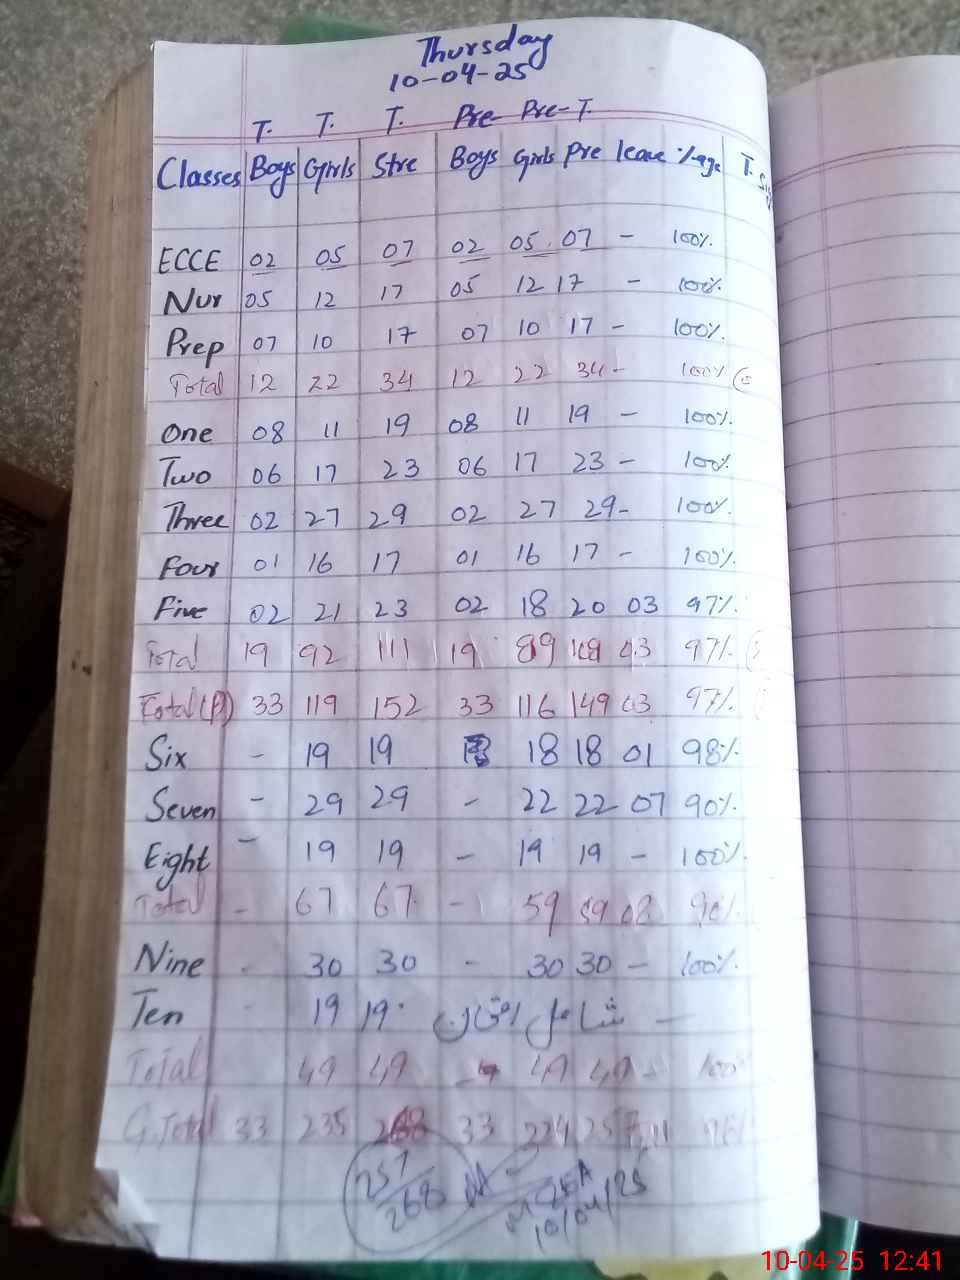 Thursday
10-04-25
T. T. T. Pre- Pre- T.
Classes Boys Girls Stre Boys Girls Pre leave %age T.
ECCE 02 05 07 02 05 07 - 100%
Nur 05 12 17 05 12 17 - 100%
Prep 07 10 17 07 10 17 - 100%
Total 12 22 34 12 22 34 - 100%
One 08 11 19 08 11 19 - 100%
Two 06 17 23 06 17 23 - 100%
Three 02 27 29 02 27 29 - 100%
Four 01 16 17 01 16 17 - 100%
Five 02 21 23 02 18 20 03 97%
Total 19 92 111 19 89 108 03 97%
Total(P) 33 119 152 33 116 149 03 97%
Six - 19 19 18 18 01 98%
Seven - 29 29 - 22 22 07 90%
Eight - 19 19 - 19 19 - 100%
Total - 67 67 - 59 59 08 90%
Nine - 30 30 - 30 30 - 100%
Ten - 19 19 شامل امتحان -
Total 49 49 - 49 49 - 100%
G.Total 33 235 268 33 224 257 11 96%
257
268
10/04/25
10-04-25 12:41